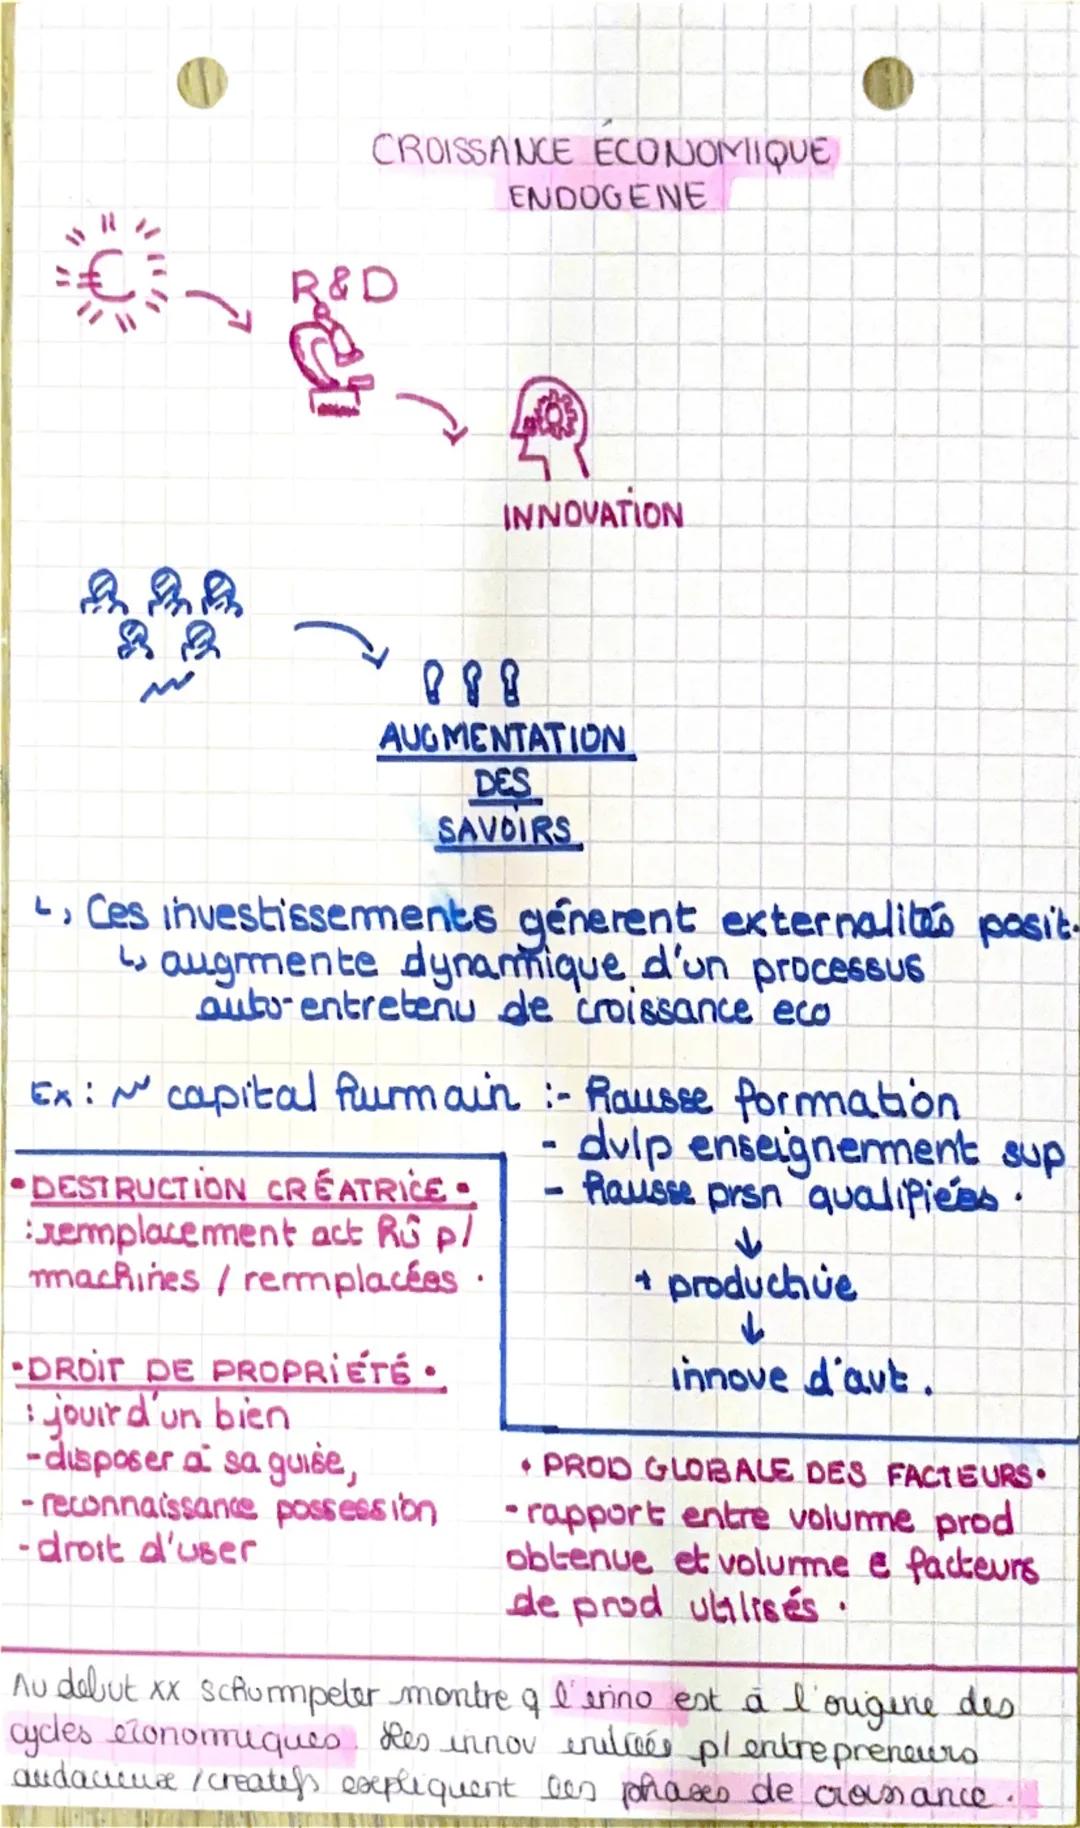 CROISSANCE ÉCONOMIQUE
ENDOGENE
€
R&D
INNOVATION
AUGMENTATION
DES
SAVOIRS
↳ Ces investissements génerent externalités posit.
↳ augmente dynamique d'un processus
auto-entretenu de croissance eco
Ex : capital humain :- hausse formation
- dvlp enseignement sup
- hausse prsn qualifiées.
↓
+ productive
↓
innove d'avt.
• DESTRUCTION CRÉATRICE •
: remplacement act hû p/
machines / remplacées.
• DROIT DE PROPRIÉTÉ •
: jouir d'un bien
- disposer à sa guise,
- reconnaissance possession
- droit d'user
• PROD GLOBALE DES FACTEURS •
- rapport entre volume prod
obtenue et volume e facteurs
de prod utilisés.
Au debut xx schumpeter montre q l'inno est à l'origine des
cycles économiques. Les innov initiées p/ entrepreneurs
audacieux / creatifs expliquent les phases de croissance.